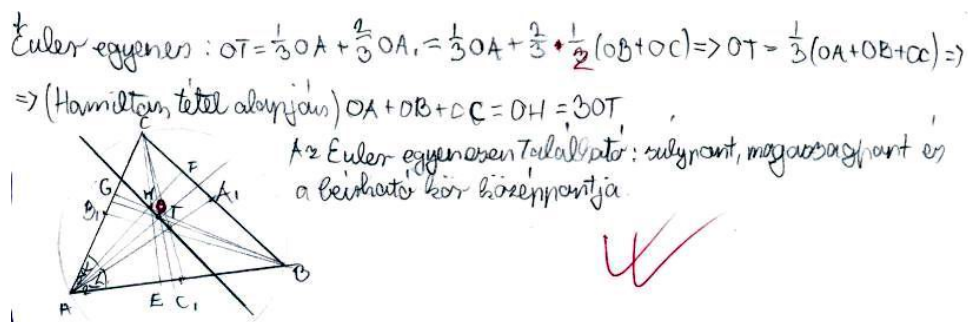 Euler egyenes : OT = 1/3 OA + 2/3 OA₁ = 1/3 OA + 2/3 · 1/2 (OB+OC) => OT = 1/3 (OA+OB+OC) =>
=> (Hamilton tétel alapján) OA + OB + OC = OH = 3OT
Az Euler egyenesen Található : súlypont, magasságpont és
a beírható kör középpontja.
C
F
G
H
O
T
A₁
B₁
B
A
E
C₁